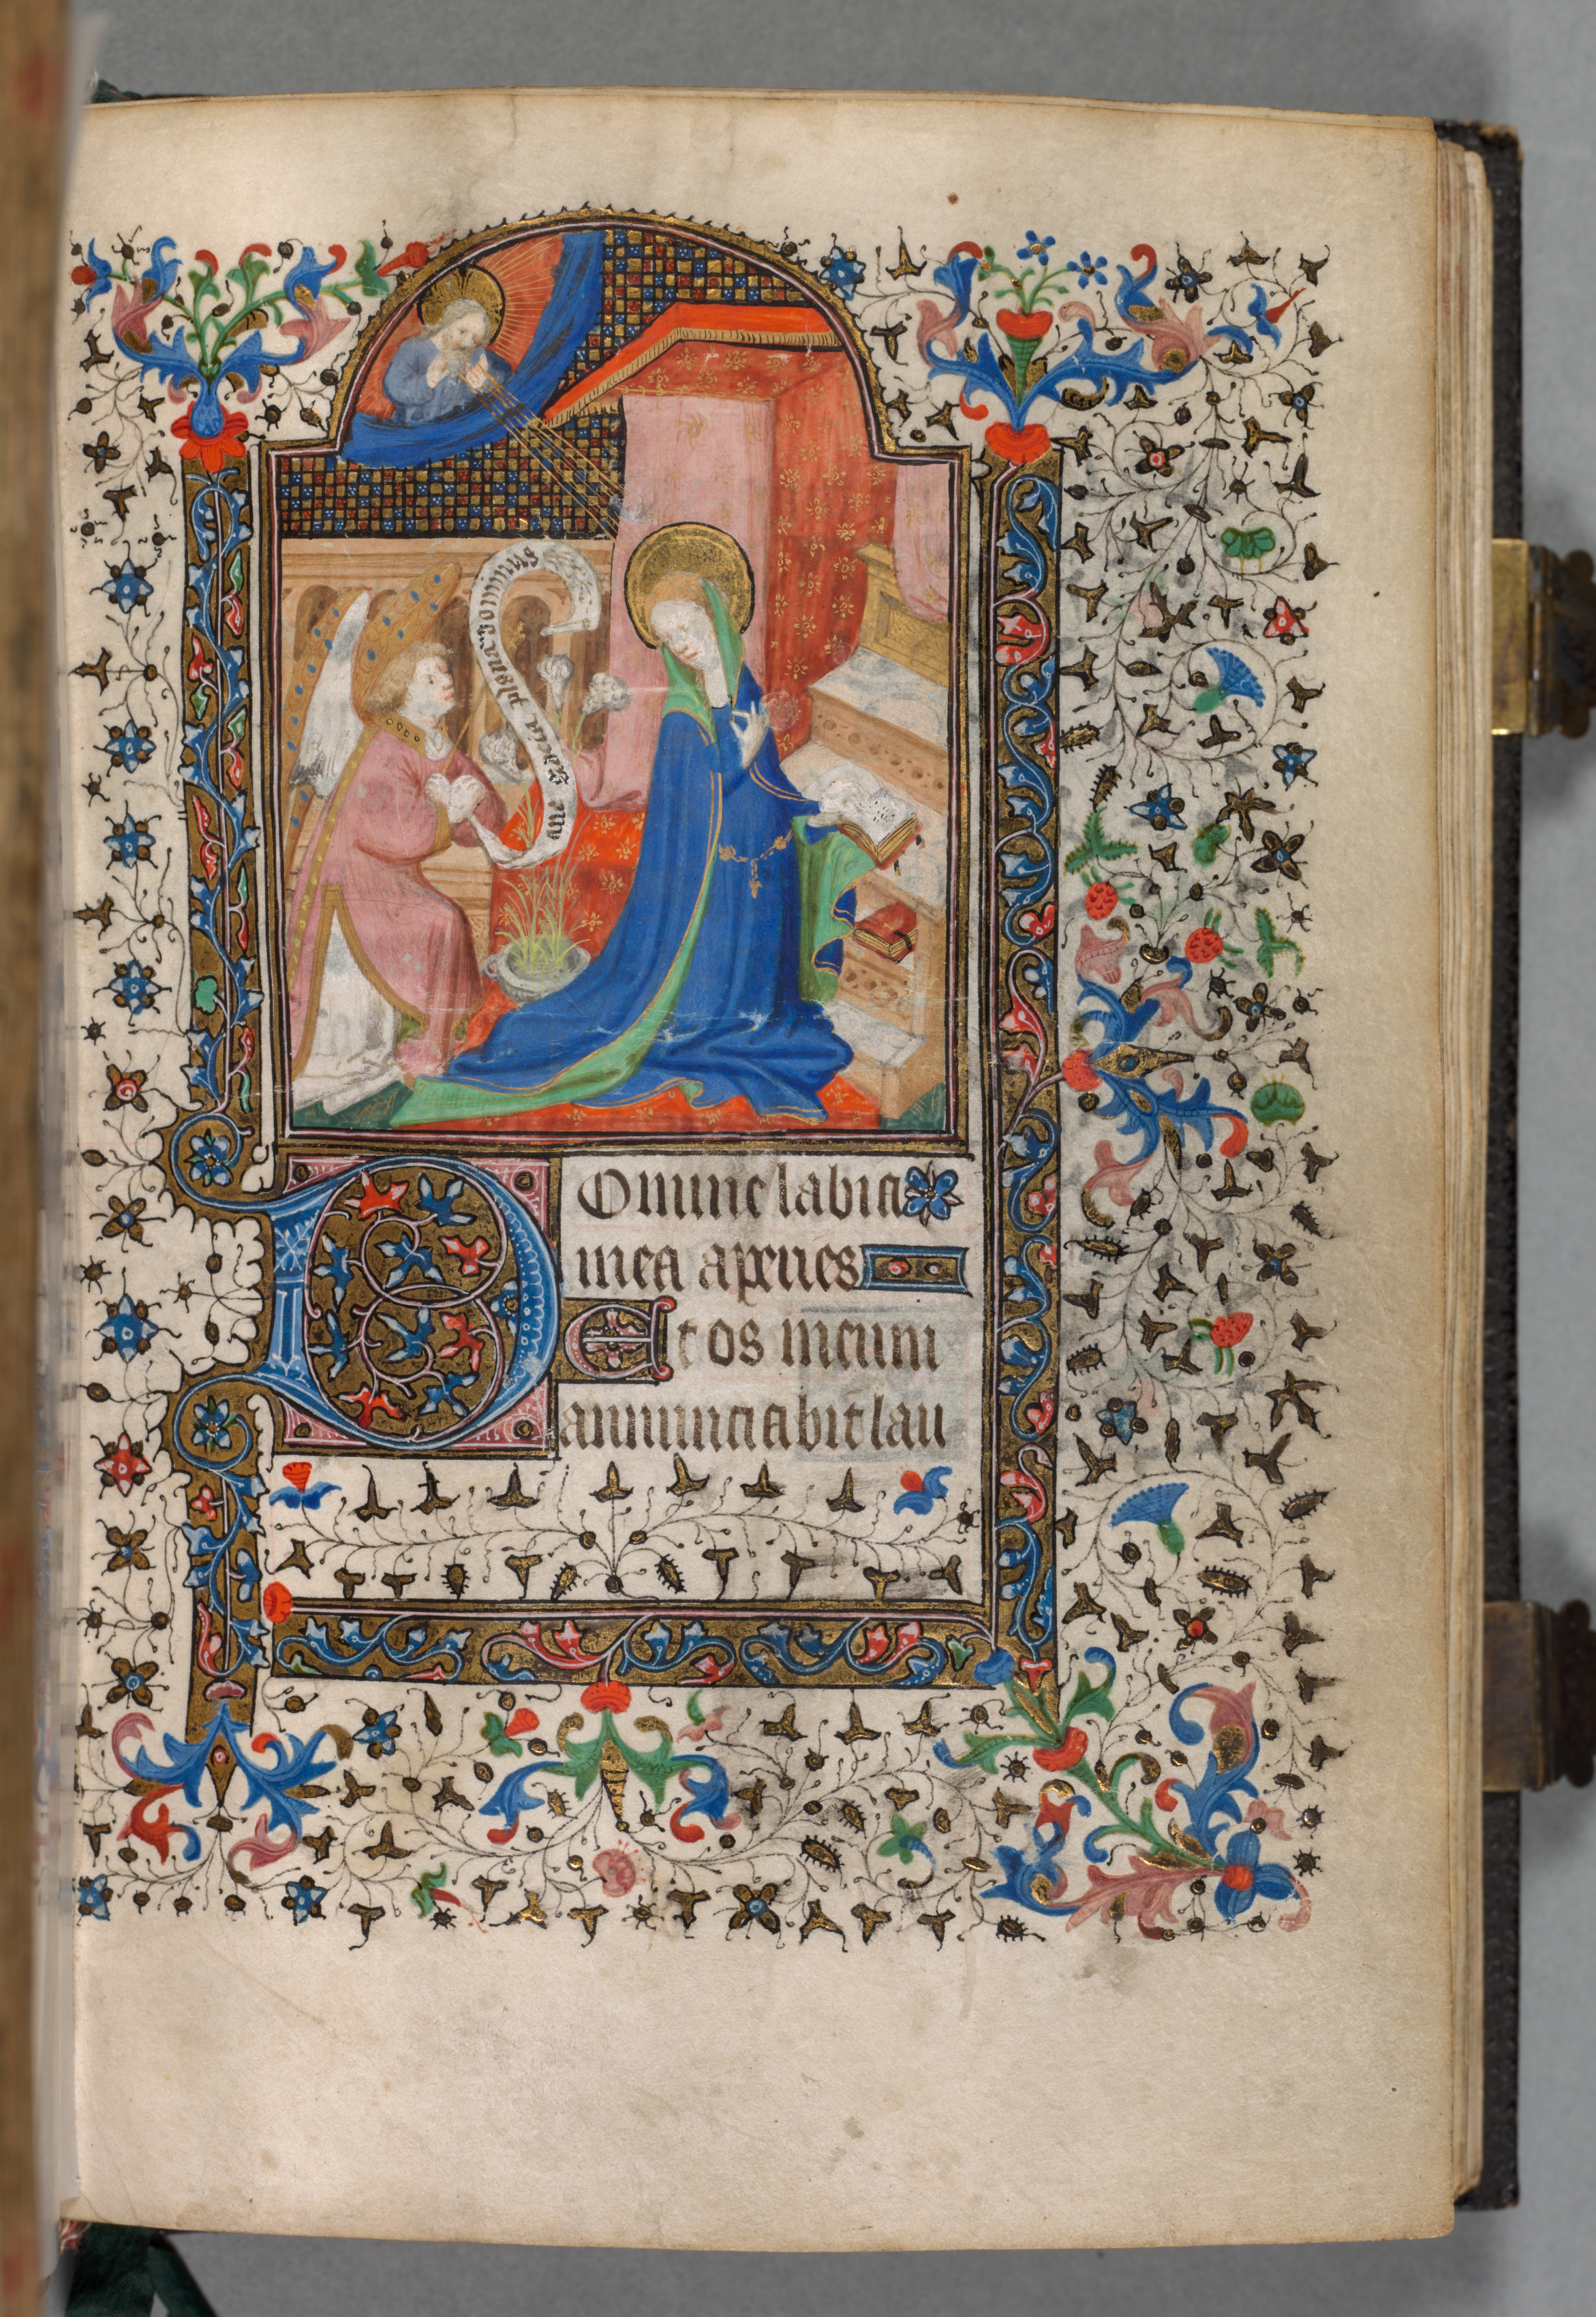 aue gracia plena dominus
Domine labia
mea aperies
Et os meum
annunciabit lau